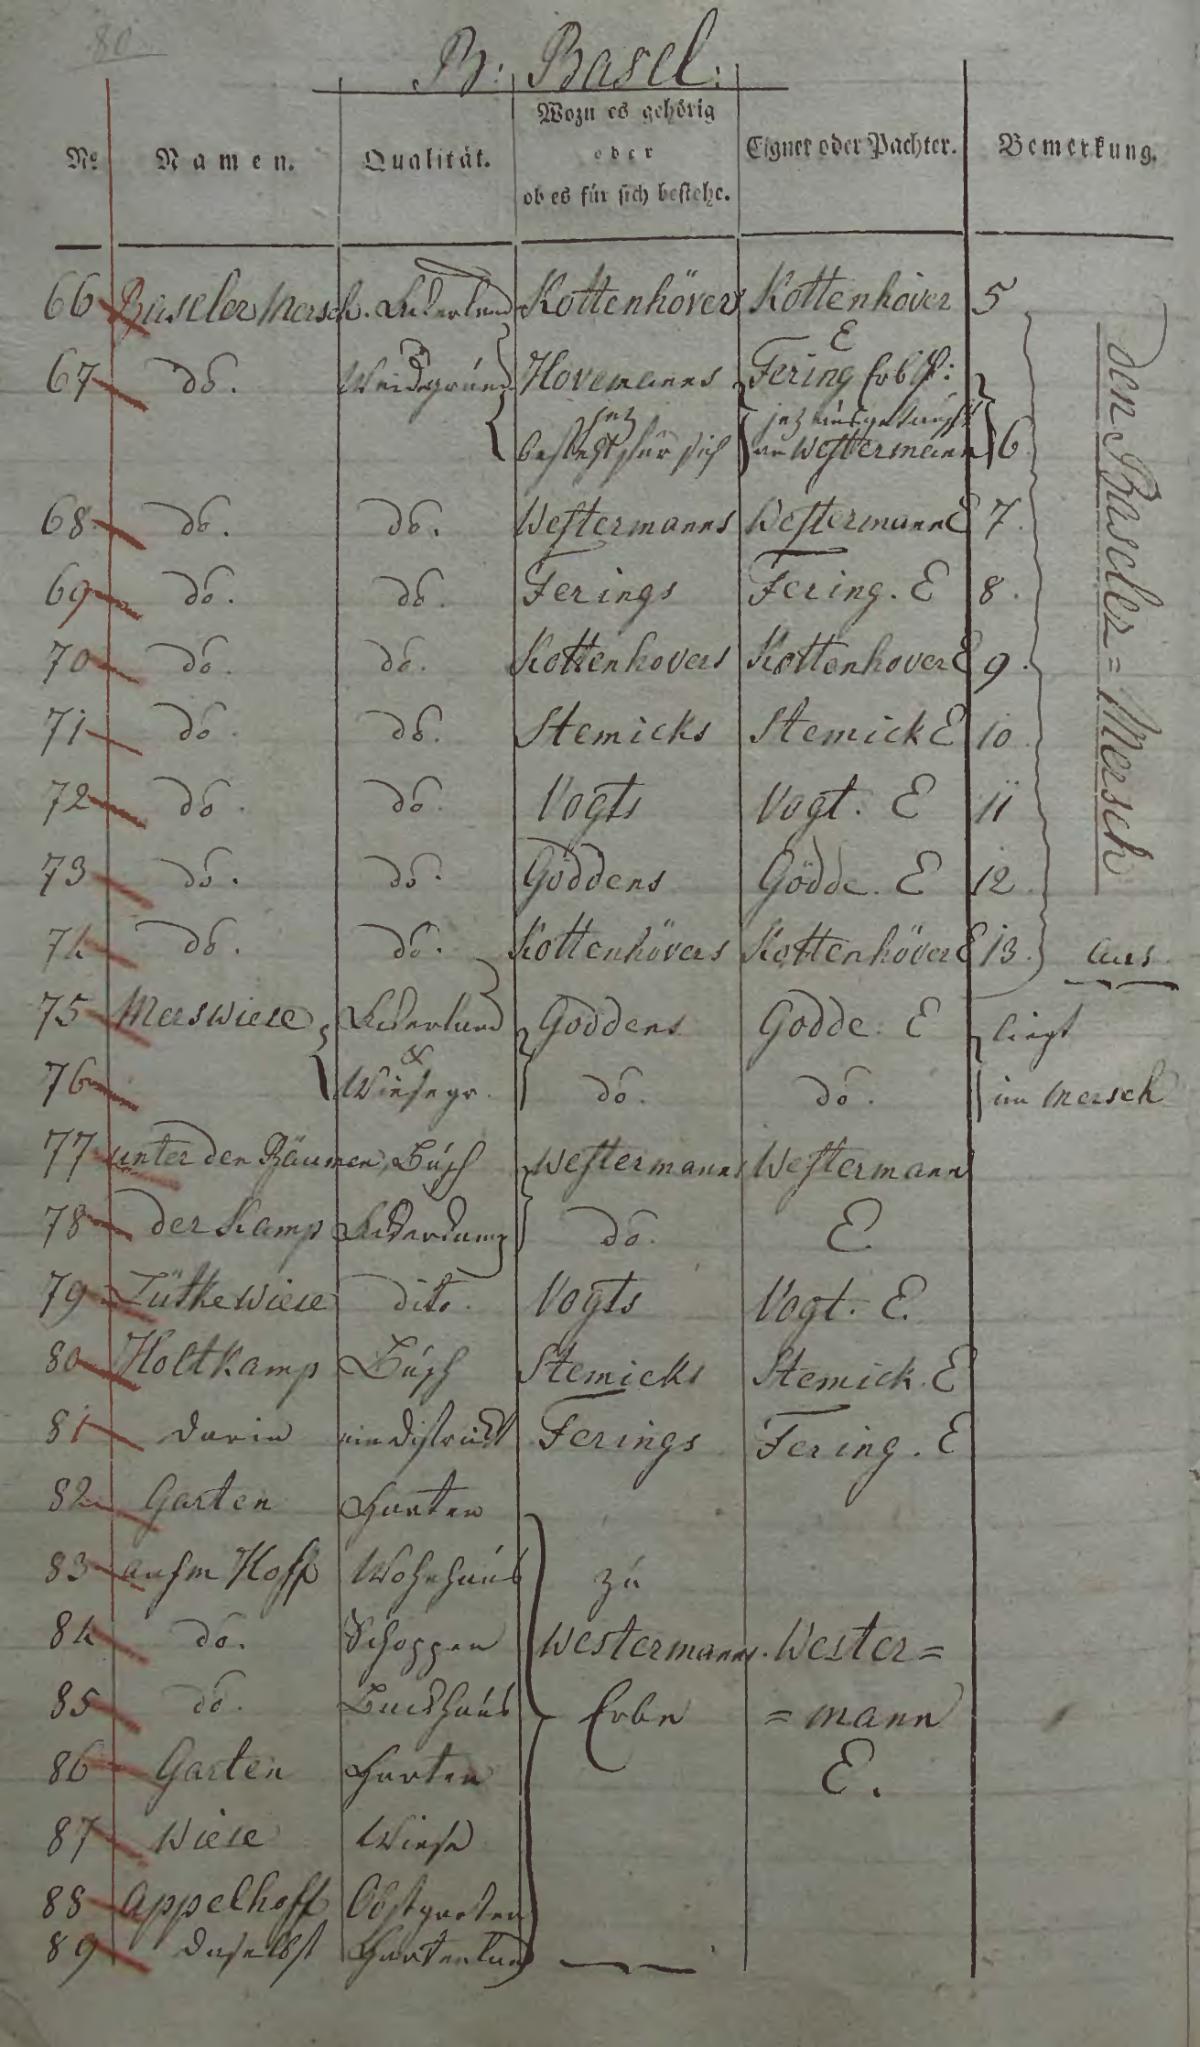 80
B: Basel:
Nº Namen. Qualität. Wozu es gehörig oder ob es für sich bestehe. Eigner oder Pachter. Bemerkung.
66 Baseler Mersch. Ackerland Kottenhövers Kottenhöver E 5
67 do. Weidegrund Hovemanns Fering Erbp:
jez besteht für sich jez ausgetauscht an Westermann 6
68 do. do. Westermanns Westermann E 7.
69 do. do. Ferings Fering. E 8.
70 do. do. Kottenhovers Kottenhover E 9.
71 do. do. Stemicks Stemick E 10.
72 do. do. Vogts Vogt. E 11
73 do. do. Göddens Gödde. E 12
74 do. do. Kottenhövers Kottenhöver E 13.
den Baseler=Mersch
aus
75 Merswiese Ackerland Goddens Godde. E liegt
76 & Wiesegr. do. do. im Mersch
77 unter den Bäumen Busch Westermanns Westermann
78 der Kamp Ackerkamp do. E
79 Lütke Wiese dito. Vogts Vogt. E.
80 Holtkamp Busch Stemicks Stemick. E
81 darin ein District Ferings Fering. E
82 Garten Garten
83 aufm Hoff Wohnhaus zu
84 do. Schoppen Westermanns. Wester=
85 do. Backhaus Erbe =mann
86 Garten Garten E.
87 Wiese Wiese
88 Appelhoff Obstgarten
89 daselbst Gartenland